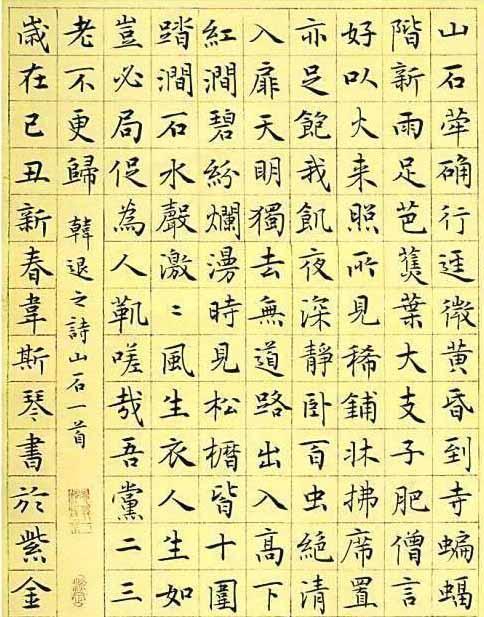 山石犖确行逕微黃昏到寺蝙蝠
階新雨足芭蕉葉大支子肥僧言
好以火来照所見稀鋪牀拂席置
亦足飽我飢夜深靜臥百虫絕清
入扉天明獨去無道路出入高下
紅澗碧紛爛漫時見松櫪皆十圍
踏澗石水聲激〻風生衣人生如
豈必局促為人鞿嗟哉吾黨二三
老不更歸
韓退之詩山石一首
歲在己丑新春韋斯琴書於紫金